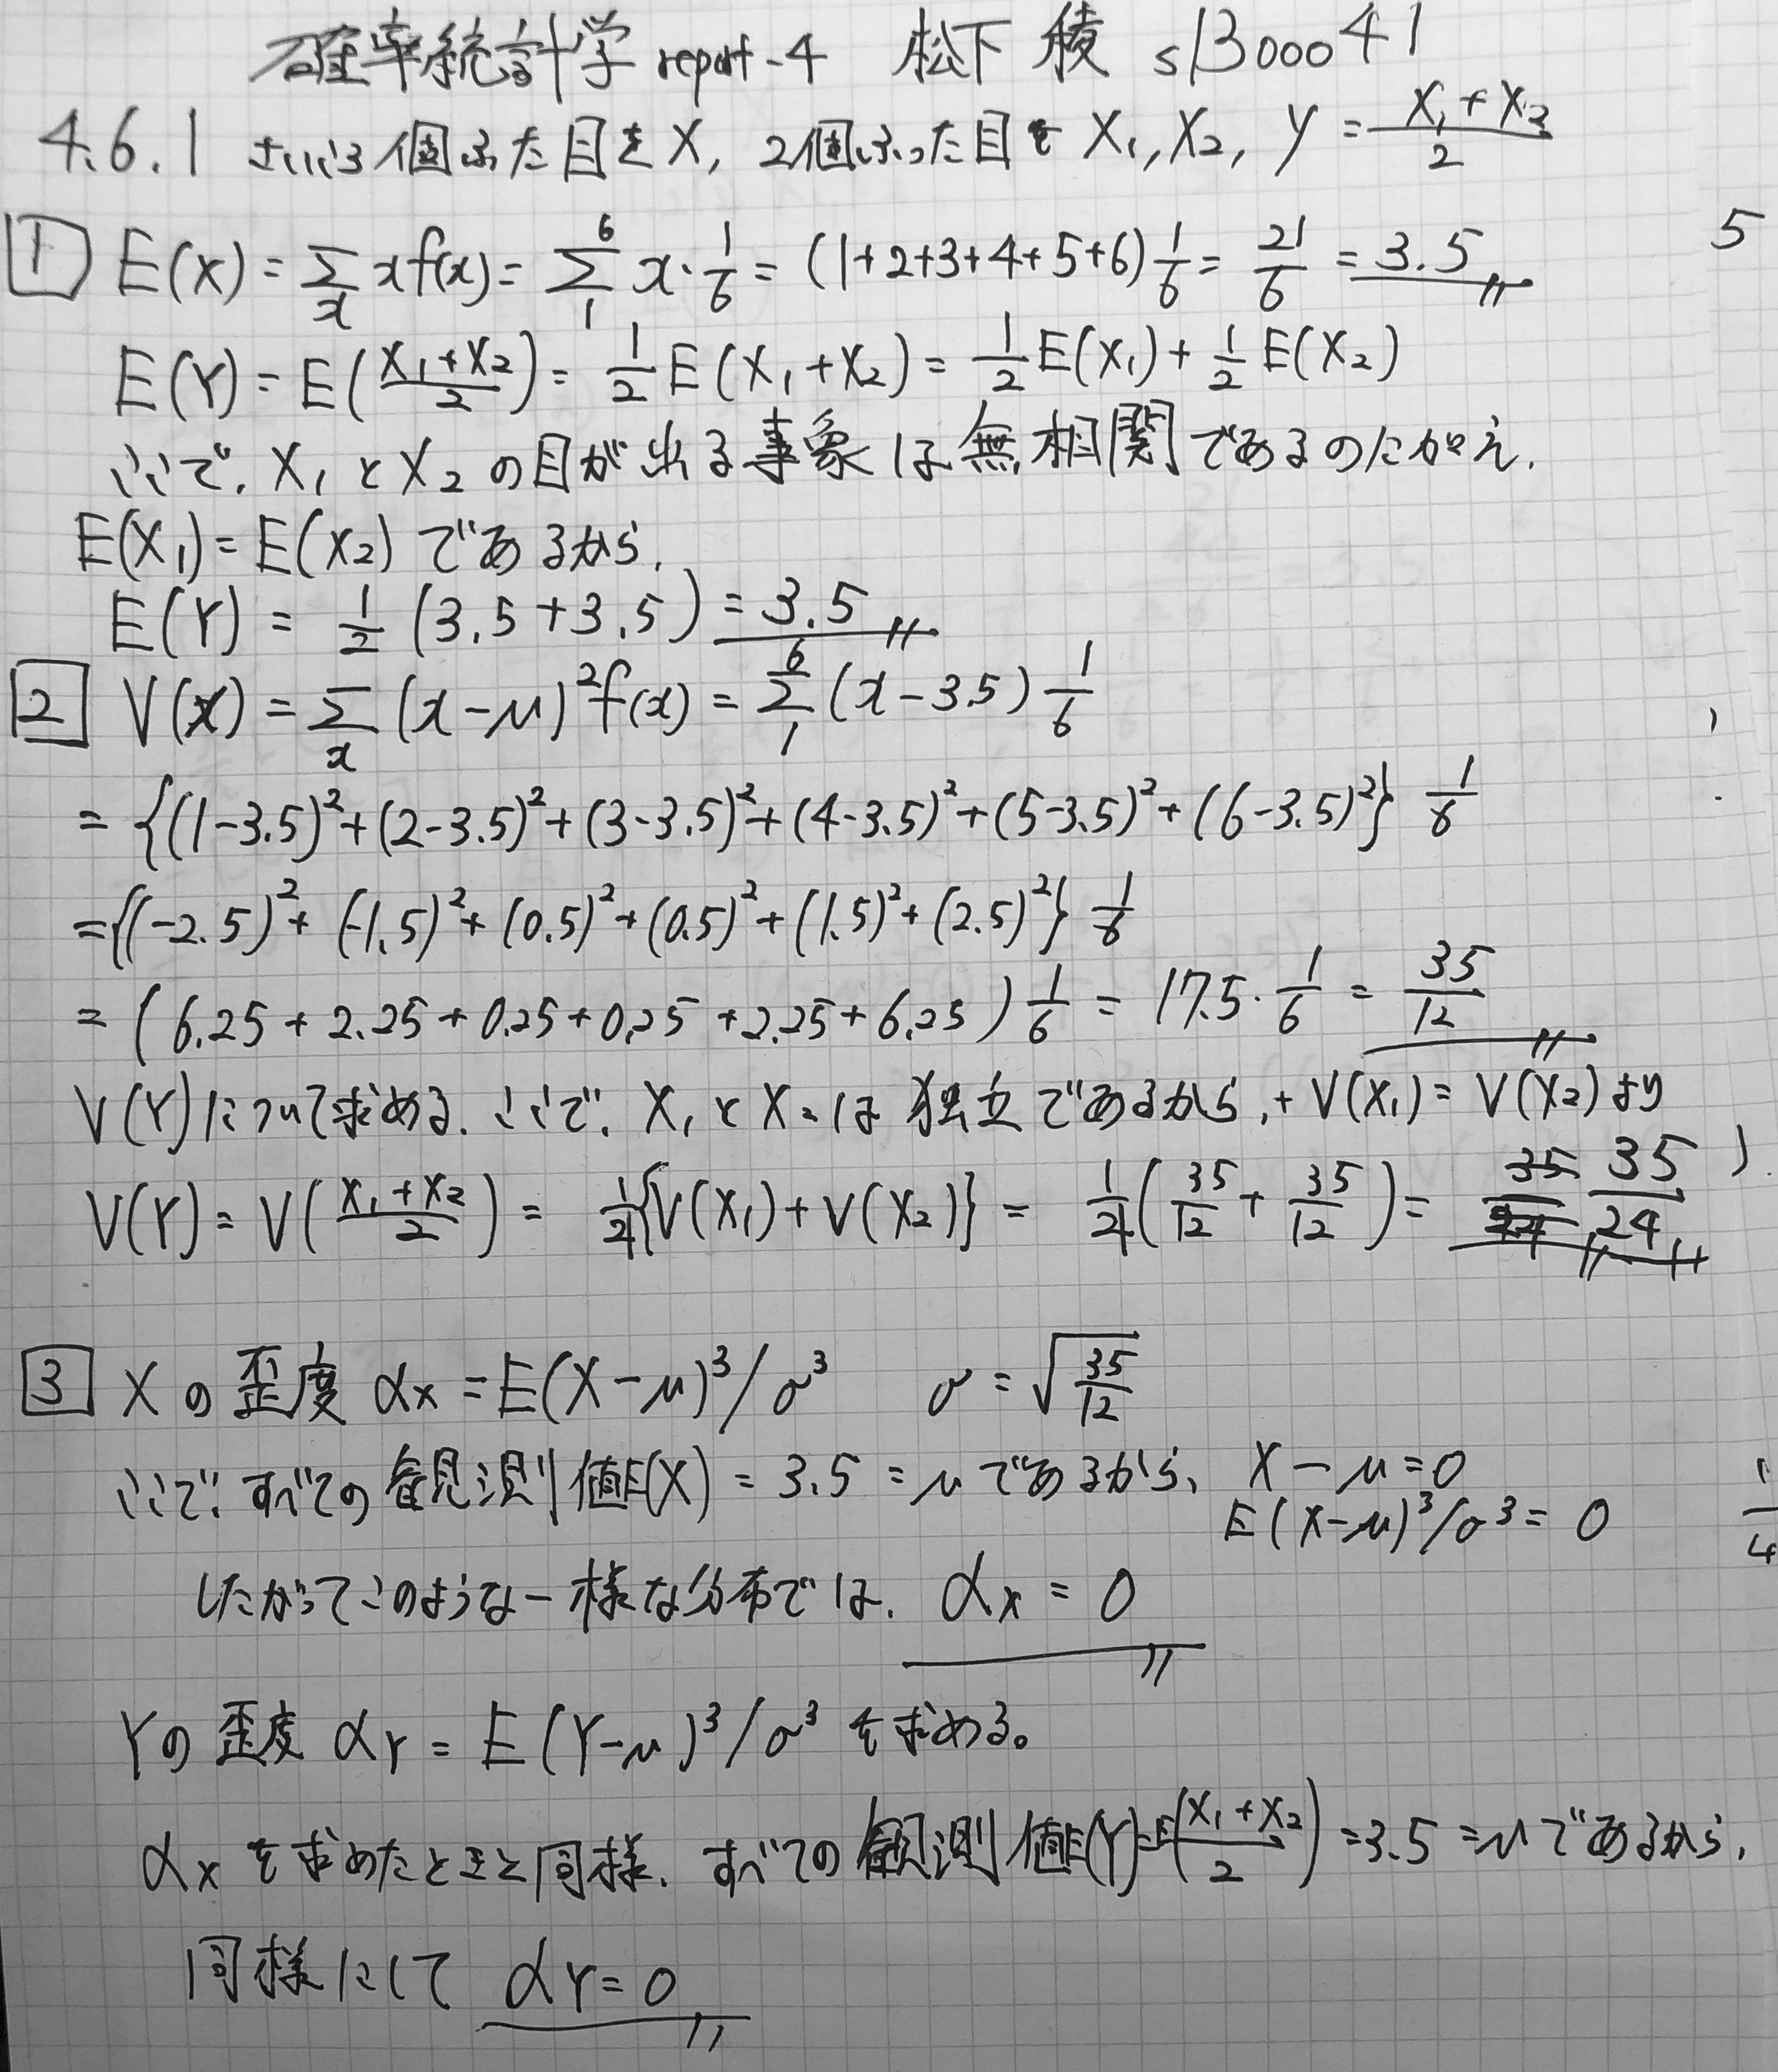 確率統計学 report-4 松下 稜 s1300041
4.6.1 さいころ1個ふった目をX, 2個ふった目を X₁, X₂, Y = (X₁+X₂)/2
1 E(X) = Σ_x x f(x) = Σ_1^6 x・1/6 = (1+2+3+4+5+6) 1/6 = 21/6 = 3.5
5
E(Y) = E((X₁+X₂)/2) = 1/2 E(X₁+X₂) = 1/2 E(X₁) + 1/2 E(X₂)
ここで、X₁とX₂の目が出る事象は無相関であるのたがえ、
E(X₁) = E(X₂) であるから、
E(Y) = 1/2 (3.5+3.5) = 3.5
2 V(X) = Σ_x (x-μ)² f(x) = Σ_1^6 (x-3.5) 1/6
= {(1-3.5)²+(2-3.5)²+(3-3.5)²+(4-3.5)²+(5-3.5)²+(6-3.5)²} 1/6
= {(-2.5)²+(-1.5)²+(0.5)²+(0.5)²+(1.5)²+(2.5)²} 1/6
= (6.25+2.25+0.25+0.25+2.25+6.25) 1/6 = 17.5・1/6 = 35/12
V(Y)について求める. ここで、X₁とX₂は独立であるから, V(X₁) = V(X₂)より
V(Y) = V((X₁+X₂)/2) = 1/4{V(X₁)+V(X₂)} = 1/4(35/12 + 35/12) = 35/24
3 Xの歪度 αx = E(X-μ)³/σ³ σ = √(35/12)
ここで、すべての観測値E(X) = 3.5 = μであるから、 X-μ=0
E(X-μ)³/σ³ = 0
したがってこのような一様な分布では、αx = 0
Yの歪度 αY = E(Y-μ)³/σ³ を求める。
αxを求めたときと同様、すべての観測値E(Y)=E((X₁+X₂)/2) = 3.5 = μであるから、
同様にして αY = 0